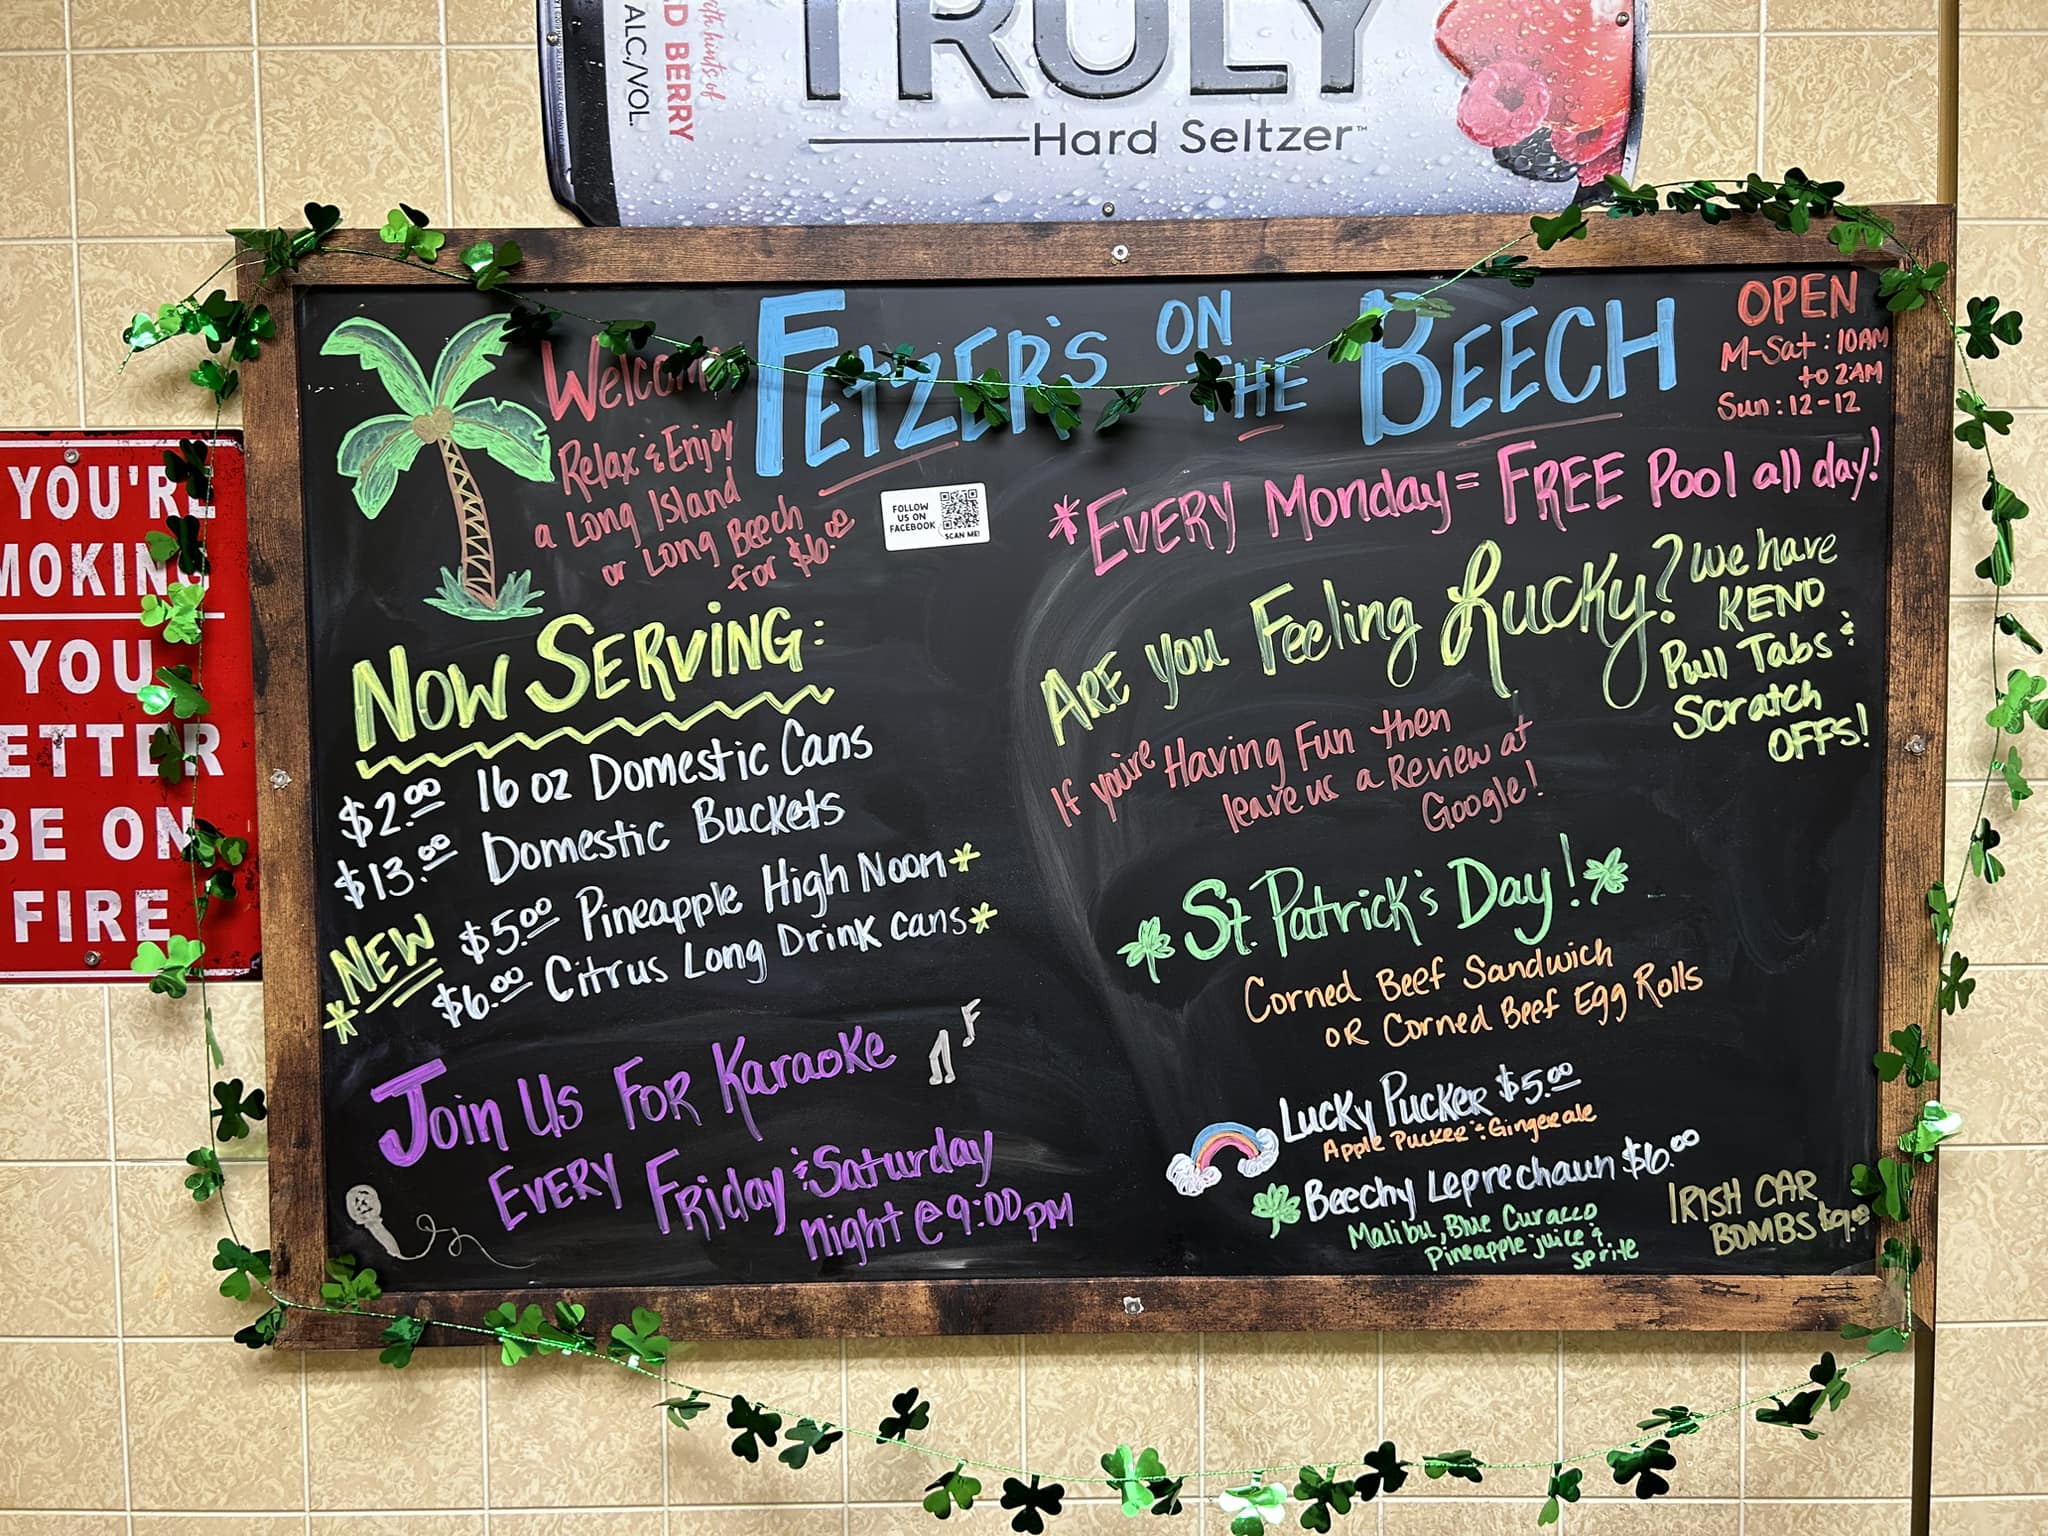 TRULY
Hard Seltzer™
with hints of
D BERRY
ALC./VOL.
YOU'RE
MOKING
YOU
ETTER
BE ON
FIRE
Welcome
FETZER'S ON THE BEECH
Relax & Enjoy
a Long Island
or Long Beech
for $6.00
FOLLOW
US ON
FACEBOOK
SCAN ME!
OPEN
M-Sat: 10AM
to 2AM
Sun: 12-12
*EVERY Monday = FREE Pool all day!
ARE you Feeling Lucky?
We have
KENO
Pull Tabs &
Scratch
OFFS!
If you're Having Fun then
leave us a Review at
Google!
NOW SERVING:
$2.00 16 oz Domestic Cans
$13.00 Domestic Buckets
*NEW $5.00 Pineapple High Noon*
$6.00 Citrus Long Drink cans*
Join Us For Karaoke
EVERY Friday & Saturday
night @ 9:00 PM
St. Patrick's Day!
Corned Beef Sandwich
OR Corned Beef Egg Rolls
Lucky Pucker $5.00
Apple Pucker & Gingerale
Beechy Leprechaun $6.00
Malibu, Blue Curacco
Pineapple juice &
Sprite
IRISH CAR
BOMBS $9.00